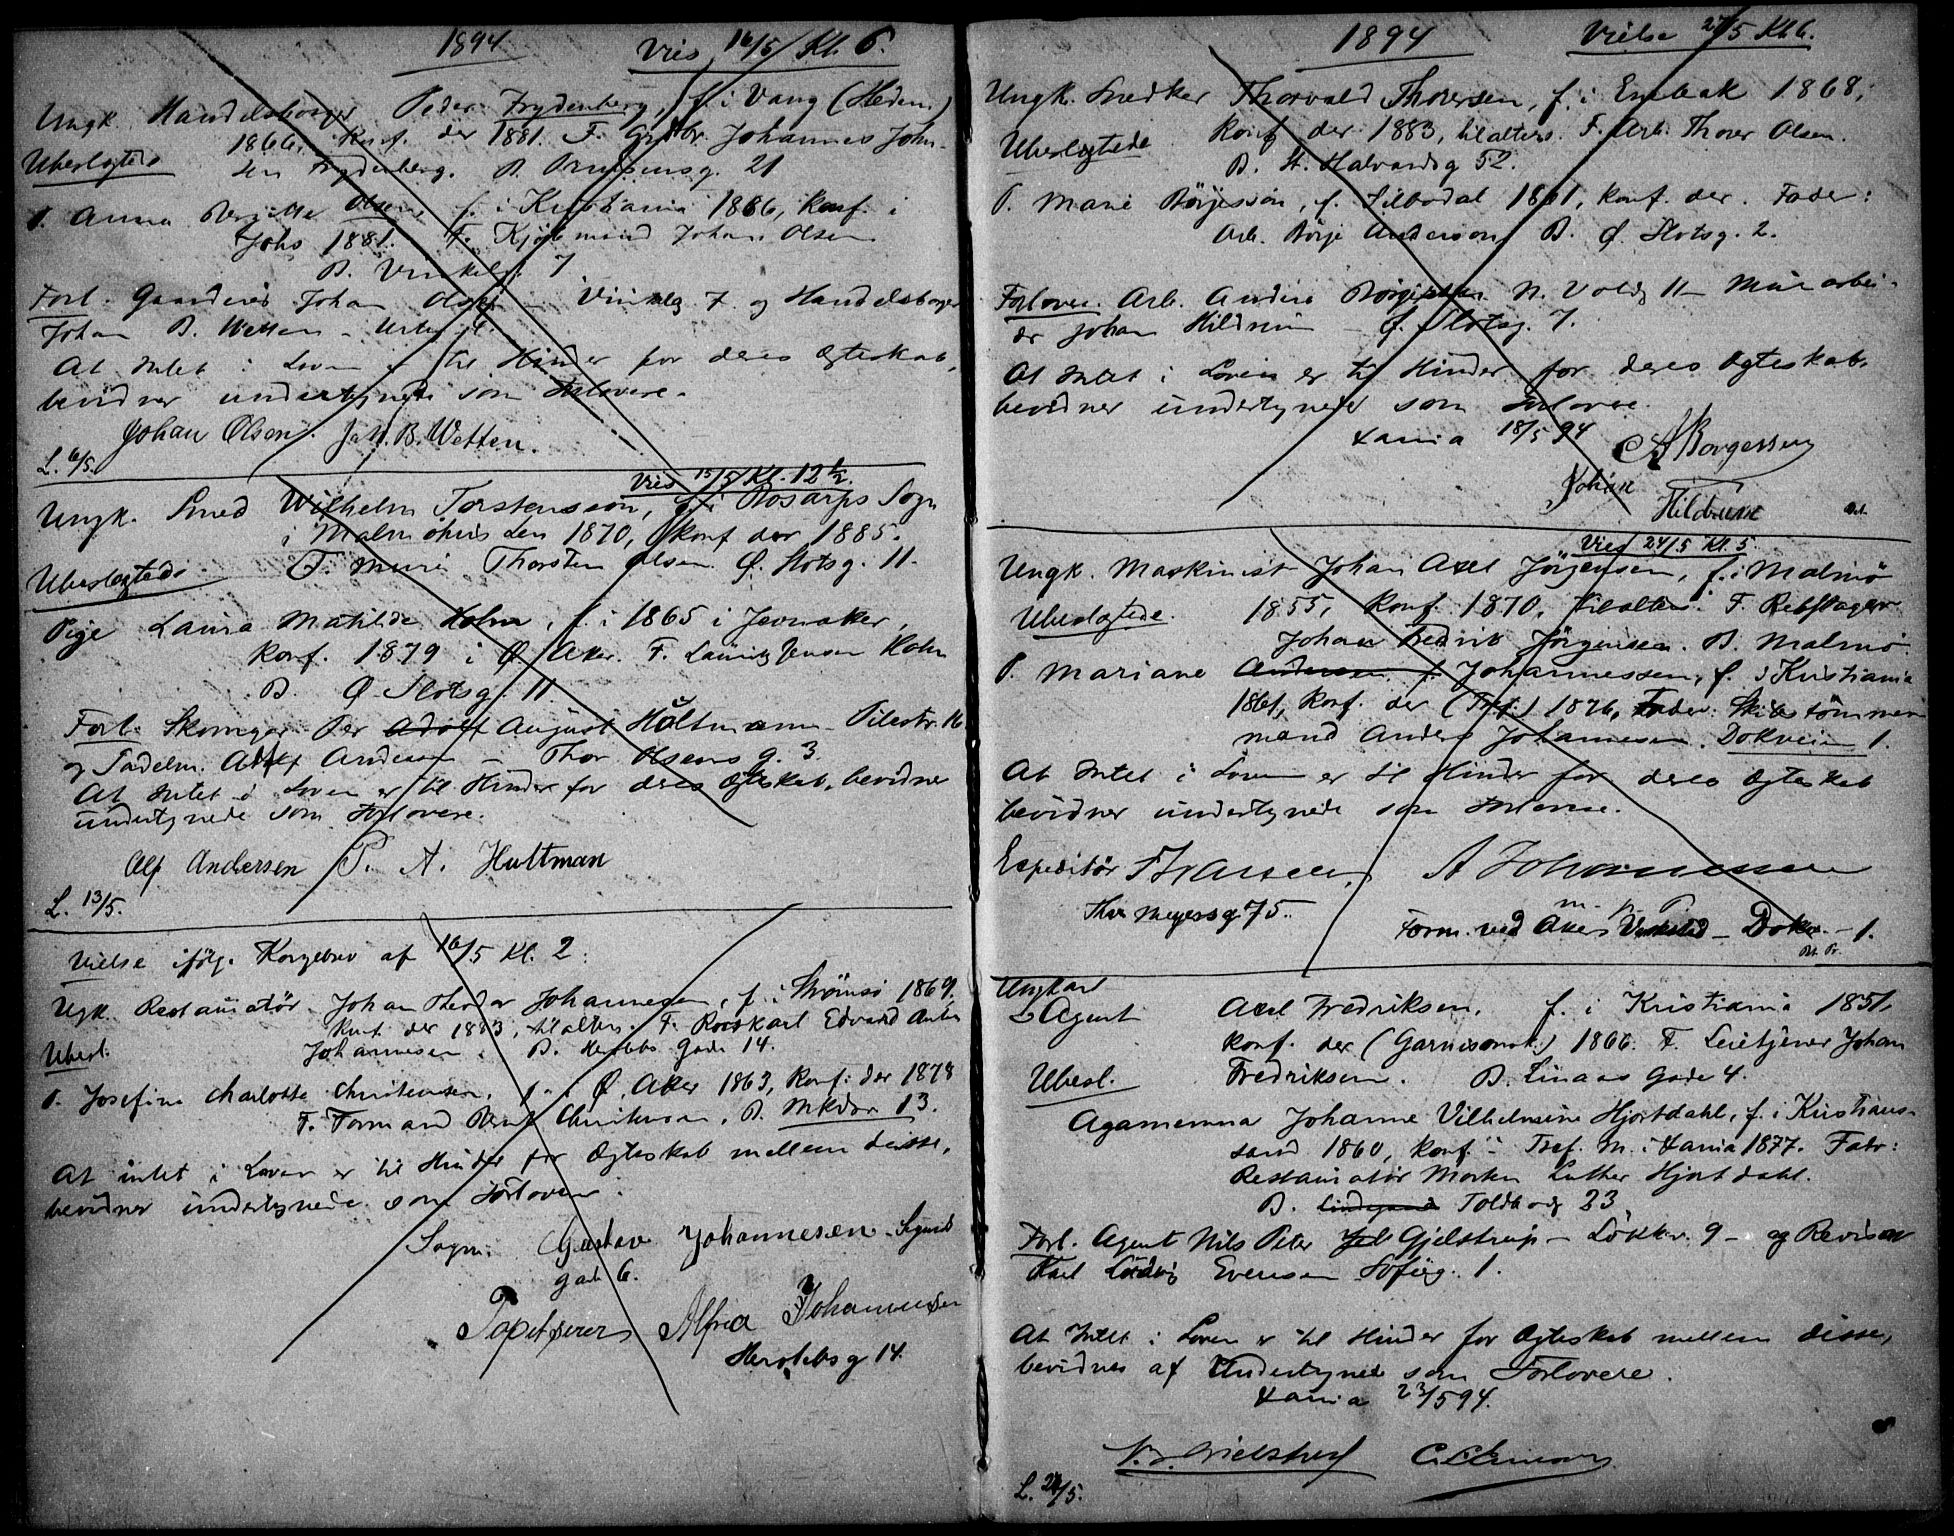 1894
Vies 16/5 Kl. 6.
Ungk. Handelsborger Peder Frydenberg, f. i Vang (Hedem.)
1866, Konf. der 1881. F. Grdbr. Johannes John-
Ubeslegtede
sen Frydenberg. B. 21
P. Anna Olsen f. i Kristiania 1866, Konf. i
Johs 1881. F. Kjøbmand Johan Olsen
B. Vinkelg. 7
Forl. Gaardeier Johan Olsen - Vinkelg 7 og Handelsborger
Johan B. Wetten -
At Intet i Loven er til Hinder for deres Ægteskab,
bevidner undertegnede som Forlovere.
Johan Olsen. Joh. B. Wetten.
L. 6/5
Vies 15/5 Kl. 12 1/2.
Ungk. Smed Wilhelm Torstensson, f. i Rosarps Sogn
i Malmöhus Len 1870, Konf der 1885.
Ubeslegtede.
F. Murer Thorsten Olsen. Ø. Slotsg. 11.
Pige Laura Matilde Holm, f. i 1865 i Jevnaker,
Konf. 1879 i Ø. Aker. F. Lauritz Jensen Holm
B. Ø Slotsg. 11
Forl. Skomager Per Adolf August Hultmann - Pilestr. 16
og Sadelm. Adolf Andersen - Thor Olsens g. 3
At Intet i Loven er til Hinder for deres Ægteskab, bevidner
undertegnede som Forlovere.
Alf Andersen P. A. Hultman
L. 13/5.
Vielse ifølge Kongebrev af 16/5 Kl. 2:
Ugk. Restauratør Johan Theodor Johannesen, f. i Strømsø 1869,
Konf. der 1883, tilalters. F. Edvard Anton
Ubesl.
Johannesen. B. Herslebs Gade 14.
P. Josefine Charlotte Christensen, f. i Ø. Aker 1863, Konf. der 1878
F. Formand Christensen, B. 13.
At intet i Loven er til Hinder for Ægteskab mellem disse,
bevidner undertegnede som Forlovere:
Gustav Johannesen Sigurds
gade 6.
Tapetserer Alfred Johannesen
Herslebsg 14.
1894
Vielse 27/5 Kl. 6.
Ungk. Snedker Thorvald Thoresen, f. i Enebak 1868,
Konf der 1883, tilalters. F. Arb. Thorer Olsen.
Ubeslegtede
B. St. Halvardsg 52.
P. Marie Börjesson, f. Tilbodal 1861, Konf. der. Fader:
Arb. Börje Anderson B. Ø. Slotsg. 2.
Forlovere. Arb. Anders Borgersen N. Voldg 11 - Murarbei-
der Johan Hildrum - Ø. Slotsg. 7.
At Intet i Loven er til Hinder for deres Ægteskab,
bevidner undertegnede som Forlovere.
Xania 18/5 94
A Borgersen
Johan
Hildrum
Vies 24/5 Kl. 5.
Ungk. Maskinist Johan Axel Jörgensen, f. i Malmö
Ubeslegtede.
1855, Konf. 1870, tilalters. F. Rebslager
Johan Fredrik Jörgensen. B. Malmö.
P. Mariane Andersen f. Johannessen, f. i Kristiania
1861, Konf. der (Tref.) 1876, Fader: Skibstømmer-
mand Anders Johannesen. Dokveien 1.
At Intet i Loven er til Hinder for deres Ægteskab
bevidner undertegnede som Forlovere.
Expeditör A Johannessen
Thv Meyersg 75.
m. p. P.
Form. ved Akers Verksted - Dokv. - 1.
Ungkarl
Agent Axel Fredriksen, f. i Kristiania 1851,
Konf. der (Garnisonsk.) 1866. F. Leietjener Johan
Ubesl.
Fredriksen. B. Linaas Gade 4.
Agamemna Johanne Vilhelmine Hjortdahl, f. i Kristians-
sand 1860, Konf. i Tref. M. i Xania 1877. Fader:
Restauratør Morten Luther Hjortdahl.
B. Toldbodg 23
Forl. Agent Nils Peter Gjelstrup - Løkkev. 9 - og Revisor
Karl Ludvig Evensen Sofieg. 1.
At Intet i Loven er til Hinder for Ægteskab mellem disse,
bevidnes af Undertegnede som Forlovere.
Xania 23/5 94.
N. P. Gjelstrup
L. 24/5.